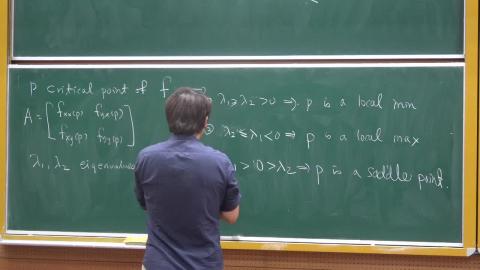 p critical point of f ⇒
λ₁ ≥ λ₂ > 0 ⇒ p is a local min
A = [ fxx(p) fyx(p)
fxy(p) fyy(p) ]
② λ₂ ≤ λ₁ < 0 ⇒ p is a local max
λ₁, λ₂ eigenvalues
> 0 > λ₂ ⇒ p is a saddle point.